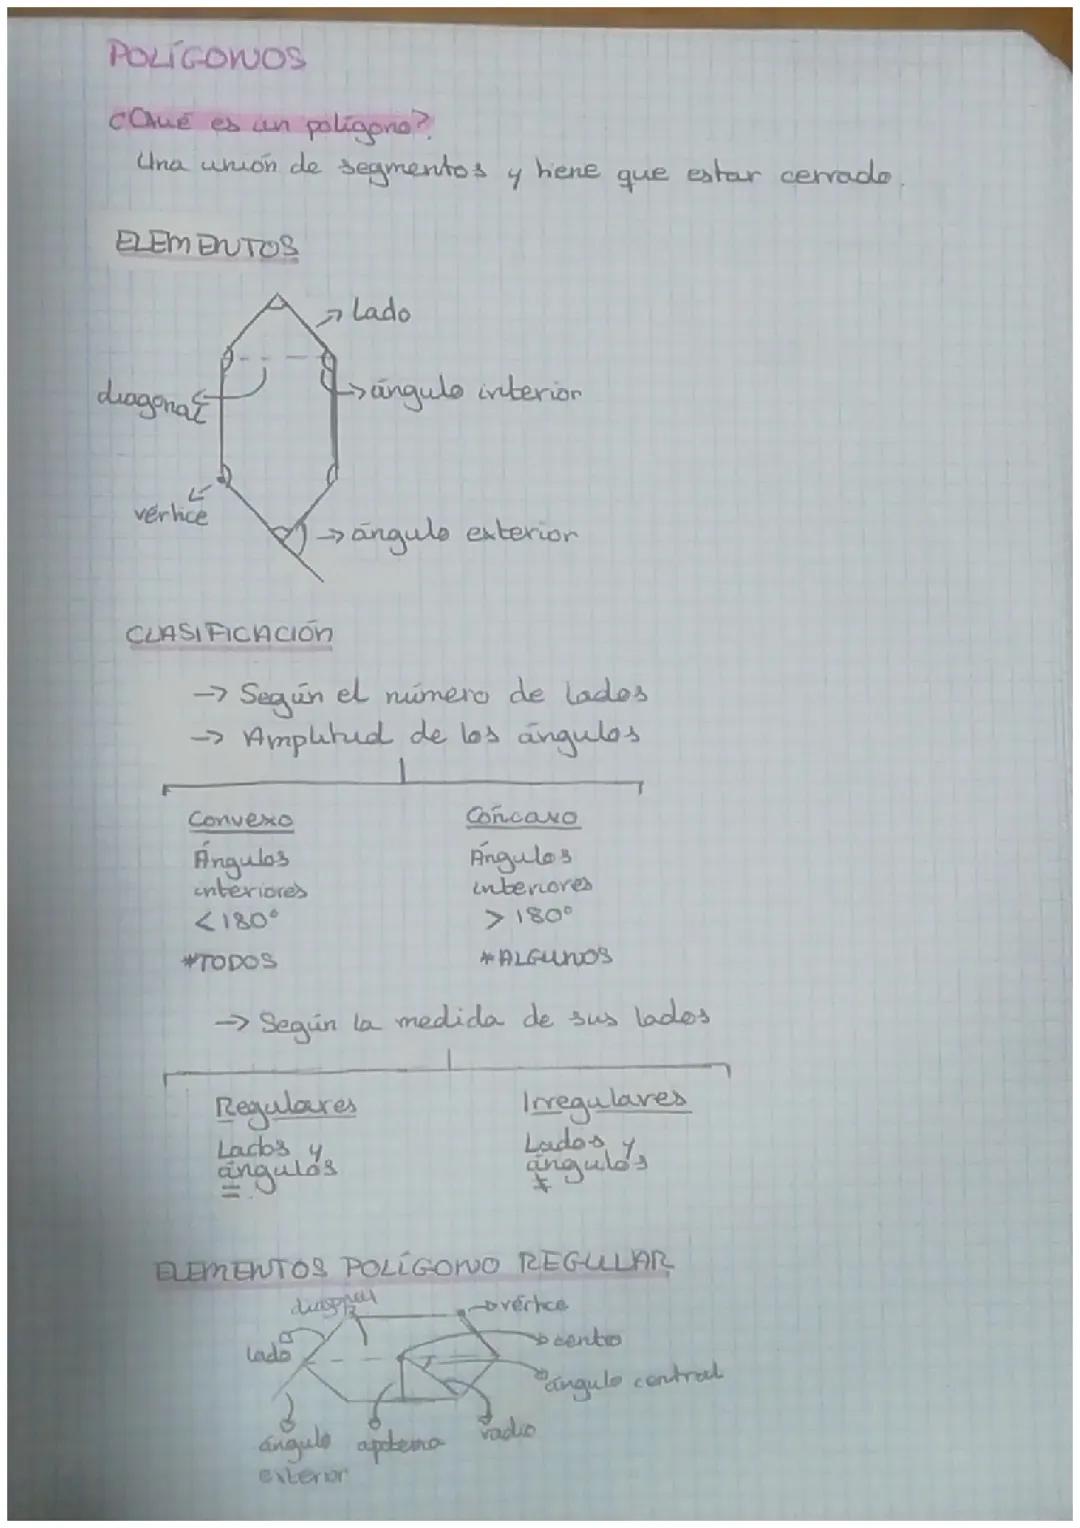 POLÍGONOS
¿Qué es un polígono?
Una unión de segmentos y tiene que estar cerrado.
ELEMENTOS
lado
diagonal
ángulo interior
vértice
ángulo exterior
CLASIFICACIÓN
→ Según el número de lados
→ Amplitud de los ángulos
Convexo
Cóncavo
Ángulos
interiores
<180°
*TODOS
Ángulos
interiores
> 180°
*ALGUNOS
→ Según la medida de sus lados
Regulares
Irregulares
Lados y
ángulos
=
Lados y
ángulos
≠
ELEMENTOS POLÍGONO REGULAR
diagonal
vértice
centro
lado
ángulo central
radio
ángulo
exterior
apotema